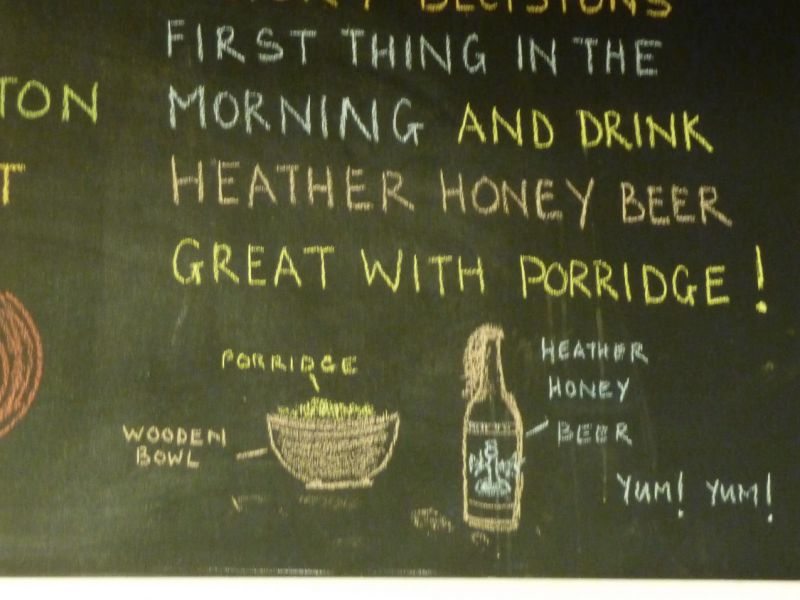 DECISIONS
FIRST THING IN THE
TON
MORNING AND DRINK
T
HEATHER HONEY BEER
GREAT WITH PORRIDGE!
PORRIDGE
WOODEN
BOWL
HEATHER
HONEY
BEER
YUM! YUM!